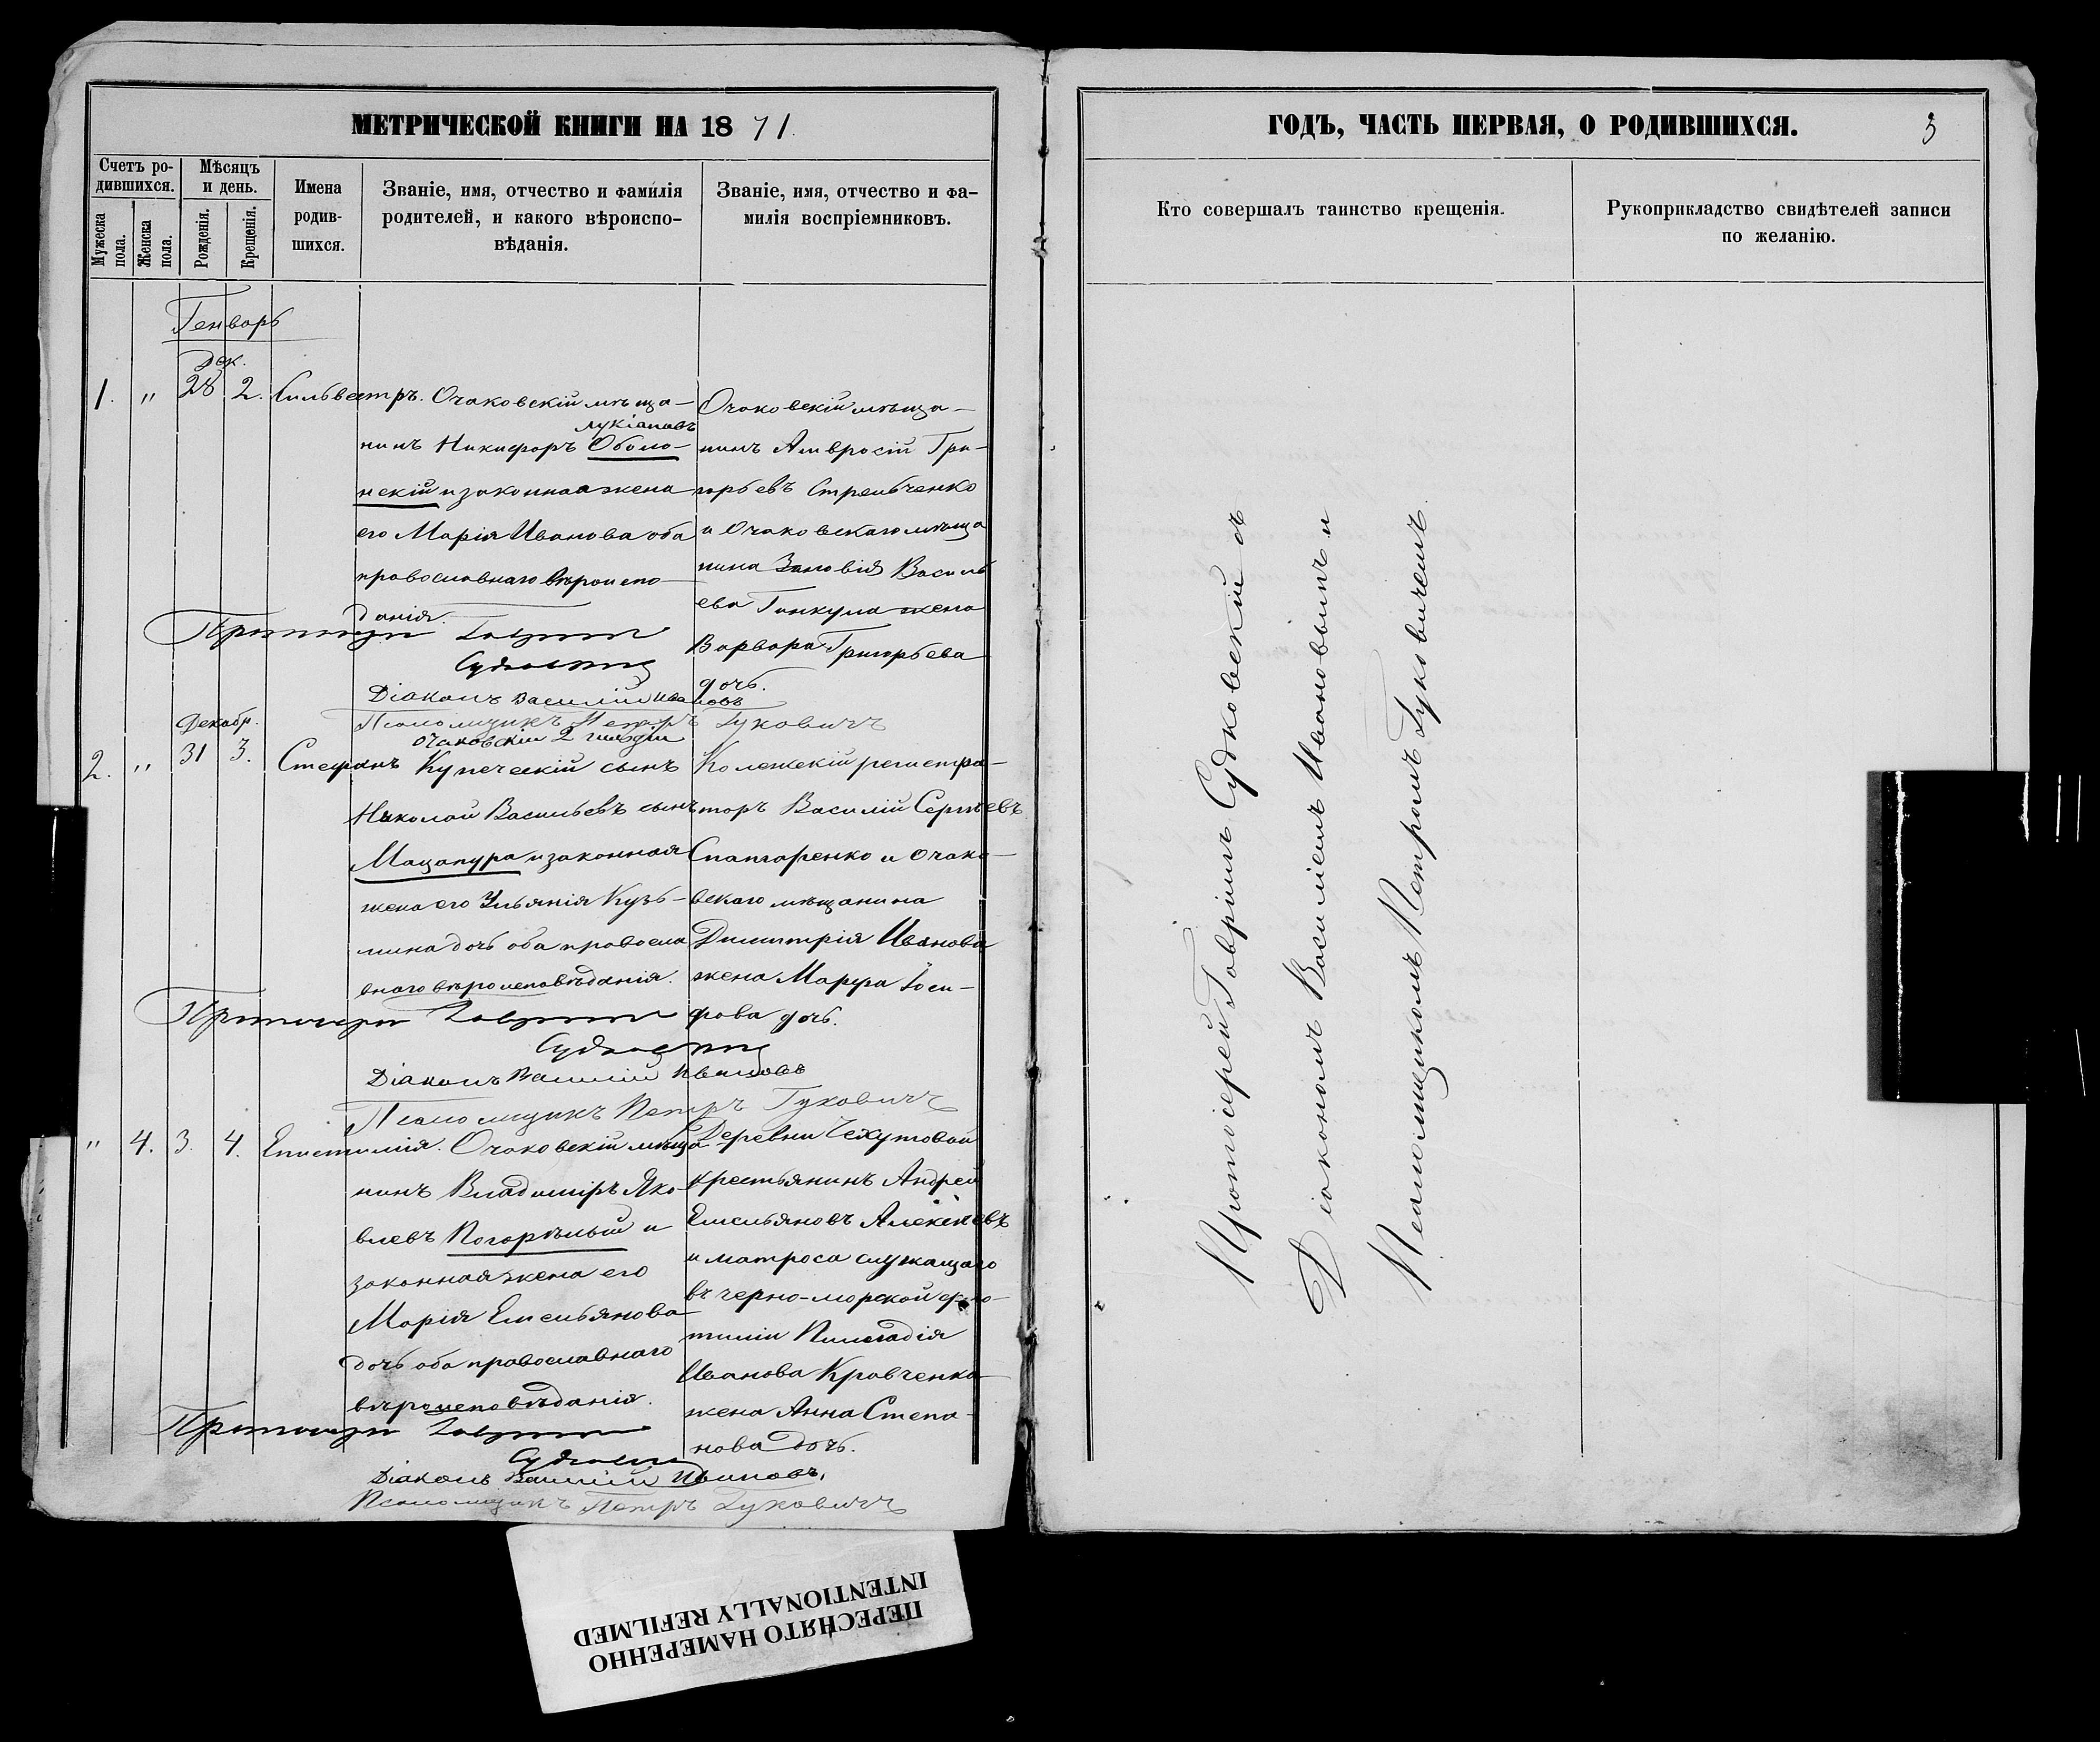 МЕТРИЧЕСКОЙ КНИГИ НА 1871.
Счетъ родившихся.
Мужеска пола.
Женска пола.
Мѣсяцъ и день.
Рожденія.
Крещенія.
Имена родившихся.
Званіе, имя, отчество и фамилія
родителей, и какого вѣроиспо-
вѣданія.
Званіе, имя, отчество и фа-
милія воспріемниковъ.
Генварь
Дек.
1. " 28 2. Сильвестръ.
Очаковскій мѣща-
Лукіановъ
нинъ Никифоръ Оболо-
нскій и законная жена
его Марія Иванова оба
православнаго вѣроиспо-
данія.
Очаковскій мѣща-
нинъ Амвросій Гри-
горьевъ Стрельченко
и Очаковскаго мѣща
нина Зиновія Василь
ева Ганкула жена
Варвара Григорьева
дочь.
Протоіерей Гавріилъ
Судковскій
Діаконъ Василій Ивановъ
Псаломщикъ Петръ Гуковичъ
Декабр.
2. " 31 3. Стефанъ
очаковскій 2 гильдіи
Купеческій сынъ
Николай Васильевъ сынъ
Мацапура и законная
жена его Ульянія Кузь-
мина дочь оба правосла
внаго вѣроисповѣданія.
Колежскій регистра-
торъ Василій Сергѣевъ
Спатаренко и Очако-
вскаго мѣщанина
Димитрія Иванова
жена Марфа Іоси-
фова дочь.
Протоіерей Гавріилъ
Судковскій
Діаконъ Василій Ивановъ
Псаломщикъ Петръ Гуковичъ
" 4. 3. 4. Епистимія.
Очаковскій мѣща
нинъ Владиміръ Яко-
влевъ Погорѣлый и
законная жена его
Марія Емельянова
дочь оба православнаго
вѣроисповѣданія.
Деревни
крестьянинъ Андрей
Емельяновъ Алексѣевъ
и матроса служащаго
въ черно-морской фло-
тиліи
Иванова Кравченка
жена Анна Степа-
нова дочь.
Протоіерей Гавріилъ
Судковскій
Діаконъ Василій Ивановъ,
Псаломщикъ Петръ Гуковичъ
ГОДЪ, ЧАСТЬ ПЕРВАЯ, О РОДИВШИХСЯ.
3
Кто совершалъ таинство крещенія.
Рукоприкладство свидѣтелей записи
по желанію.
Протоіерей Гавріилъ Судковскій съ
Діакономъ Василіемъ Ивановымъ и
Псаломщикомъ Петромъ Гуковичемъ
ПЕРЕСНЯТО НАМЕРЕННО
INTENTIONALLY REFILMED